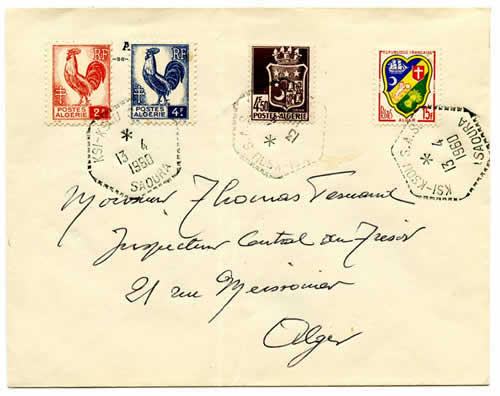 RF RF
POSTES ALGERIE POSTES ALGERIE
2F 4F
4F50
POSTES-ALGERIE
REPUBLIQUE FRANÇAISE
15F
KSI-KSOU
* 13 4 1960
SAOURA
KSI-KSOU S.A.S
* 13 4 1960
SAOURA
Monsieur Thomas
Inspecteur Central du Trésor
21 rue Meissonier
Alger